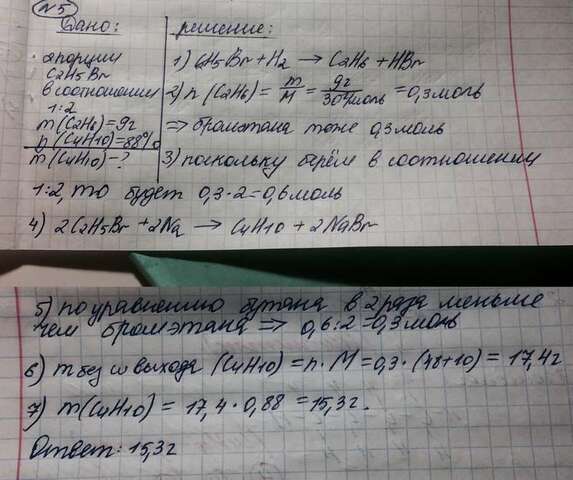 N5
Дано:
2 порции
C2H5Br
в соотношении
1:2
m(C2H6)=9г
η(C4H10)=88%
m(C4H10)-?
решение:
1) C2H5Br+H2 → C2H6+HBr
2) n(C2H6)= m/M = 9г/30г/моль =0,3моль
=> бромэтана тоже 0,3моль
3) поскольку берём в соотношении
1:2, то будет 0,3·2=0,6моль
4) 2C2H5Br+2Na → C4H10+2NaBr
5) по уравнению бутана в 2 раза меньше
чем бромэтана => 0,6:2=0,3моль
6) m без выхода (C4H10)=n·M=0,3·(48+10)=17,4г
7) m(C4H10)=17,4·0,88=15,3г.
Ответ: 15,3г